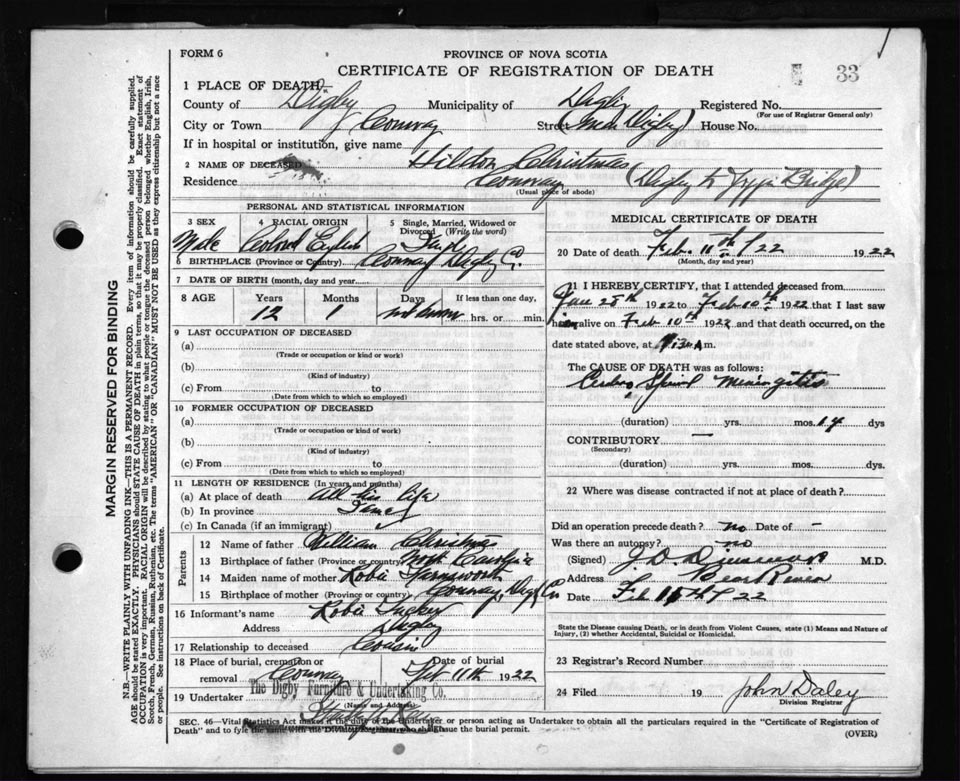 FORM 6
PROVINCE OF NOVA SCOTIA
CERTIFICATE OF REGISTRATION OF DEATH
33
1 PLACE OF DEATH
County of Digby Municipality of Digby Registered No.
(For use of Registrar General only)
City or Town Conway Street (Near Digby) House No.
If in hospital or institution, give name
2 NAME OF DECEASED Hildon Christmas
Residence Conway (Digby to Bridge)
(Usual place of abode)
PERSONAL AND STATISTICAL INFORMATION
3 SEX Male
4 RACIAL ORIGIN Colored English
5 Single, Married, Widowed or Divorced (Write the word) Single
6 BIRTHPLACE (Province or Country) Conway Digby Co.
7 DATE OF BIRTH (month, day and year)
8 AGE Years Months Days If less than one day,
12 1 hrs. or min.
9 LAST OCCUPATION OF DECEASED
(a)
(Trade or occupation or kind or work)
(b)
(Kind of industry)
(c) From to
(Date from which to which so employed)
10 FORMER OCCUPATION OF DECEASED
(a)
(Trade or occupation or kind of work)
(b)
(Kind of industry)
(c) From to
(Date from which to which so employed)
11 LENGTH OF RESIDENCE (In years and months)
(a) At place of death All his life
(b) In province
(c) In Canada (if an immigrant)
Parents
12 Name of father William Christmas
13 Birthplace of father (Province or country) North Carolina
14 Maiden name of mother
15 Birthplace of mother (Province or country) Conway, Digby Co
16 Informant's name Tucker
Address Digby
17 Relationship to deceased Cousin
18 Place of burial, cremation or removal Conway Date of burial Feb 11th 1922
19 Undertaker The Digby Furniture & Undertaking Co.
(Name and Address)
MEDICAL CERTIFICATE OF DEATH
20 Date of death Feb 11th / 22 1922
(Month, day and year)
21 I HEREBY CERTIFY, that I attended deceased from
Jan 28th 1922 to Feb 10th 1922 that I last saw
him alive on Feb 10th 1922 and that death occurred, on the
date stated above, at m.
The CAUSE OF DEATH was as follows:
Cerebro Spinal Meningitis
(duration) yrs. mos. 14 dys
CONTRIBUTORY —
(Secondary)
(duration) yrs. mos. dys.
22 Where was disease contracted if not at place of death?
Did an operation precede death? no Date of -
Was there an autopsy? no
(Signed) M.D.
Address Bear River
Date Feb 11th / 22
State the Disease causing Death, or in death from Violent Causes, state (1) Means and Nature of
Injury, (2) whether Accidental, Suicidal or Homicidal.
23 Registrar's Record Number
24 Filed 19 John Daley
Division Registrar
SEC. 46—Vital Statistics Act makes it the duty of the Undertaker or person acting as Undertaker to obtain all the particulars required in the "Certificate of Registration of
Death" and to fyle the same with the Division Registrar who shall issue the burial permit.
(OVER)
MARGIN RESERVED FOR BINDING
N.B.—WRITE PLAINLY WITH UNFADING INK—THIS IS A PERMANENT RECORD. Every item of information should be carefully supplied.
AGE should be stated EXACTLY. PHYSICIANS should STATE CAUSE OF DEATH in plain terms, so that it may be properly classified. Exact statement of
OCCUPATION is very important. RACIAL ORIGIN will be described by stating to what people or tongue the deceased person belonged whether English, Irish,
Scotch, French, German, Russian, Ruthenian, etc. The terms "AMERICAN" OR "CANADIAN" MUST NOT BE USED as they express citizenship but not a race
or people. See instructions on back of Certificate.